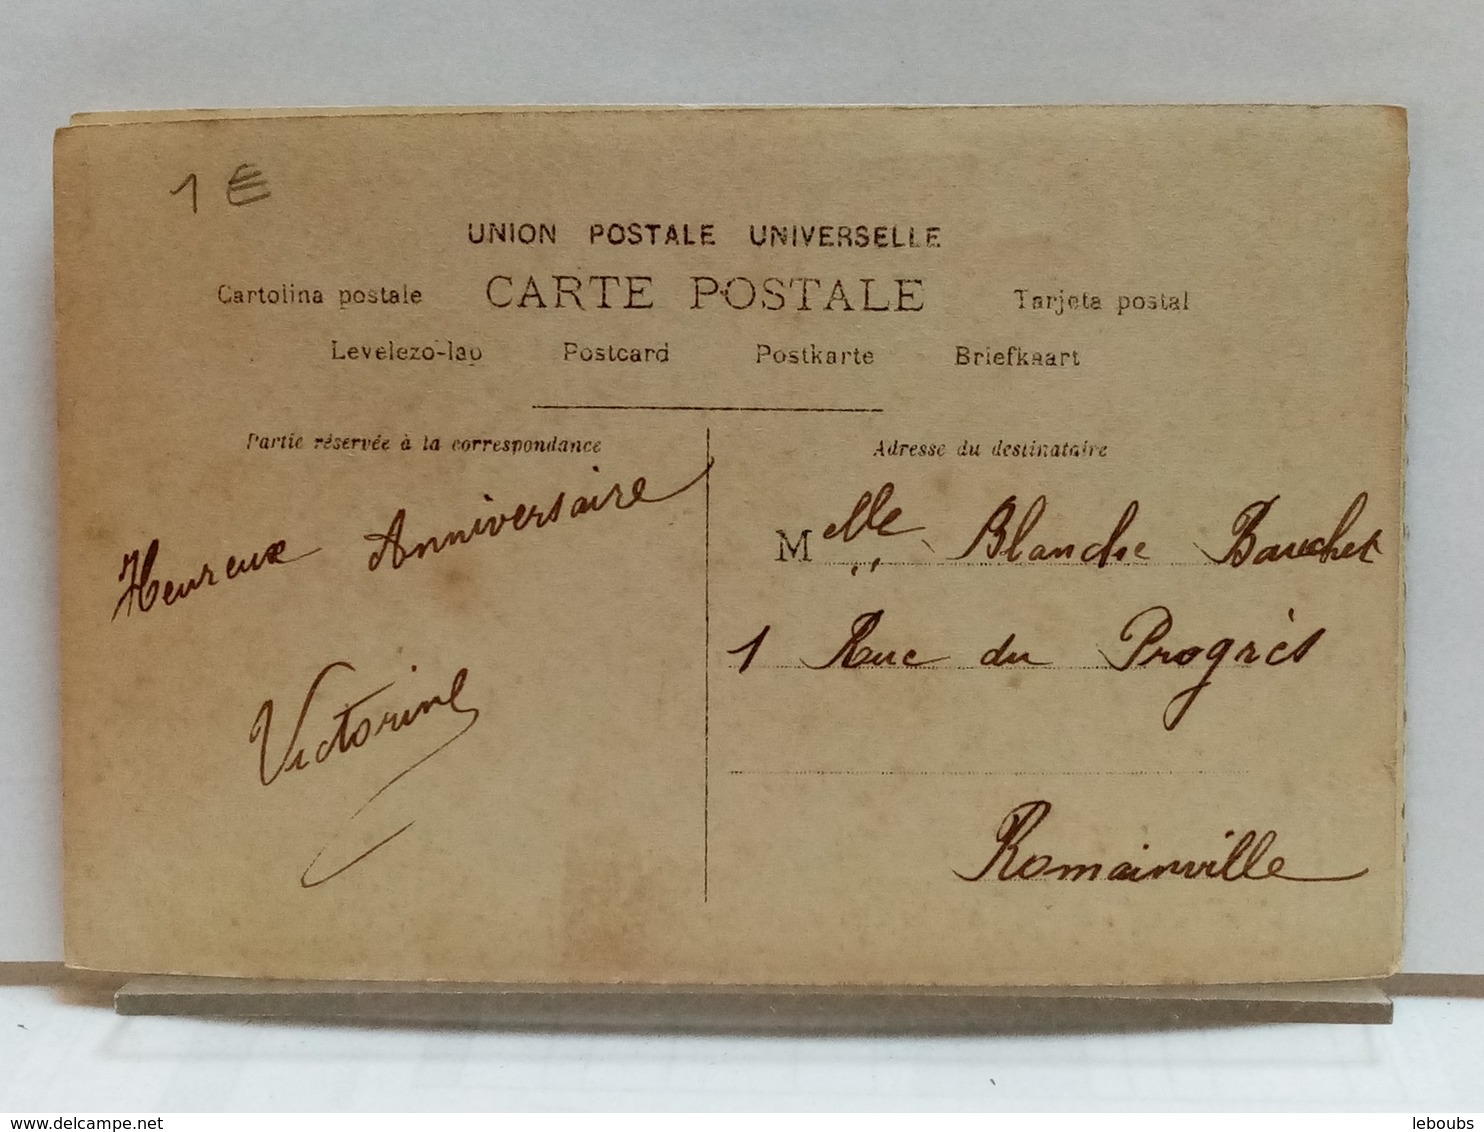 1 €
UNION POSTALE UNIVERSELLE
Cartolina postale CARTE POSTALE Tarjeta postal
Levelezo-lap Postcard Postkarte Briefkaart
Partie réservée à la correspondance
Heureux Anniversaire
Victorine
Adresse du destinataire
Melle Blanche Bauchet
1 Rue du Progrès
Romainville
www.delcampe.net
leboubs